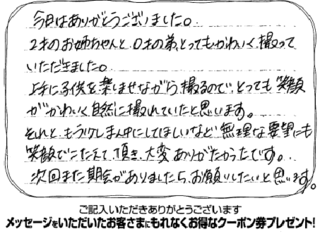 今日はありがとうございました。
2才のお姉ちゃんと、0才の弟、とってもかわいく撮って
いただきました。
上手に子供を楽しませながら撮るので、とっても笑顔
がかわいく自然に撮れていたと思います。
それと、もう少しまん中にしてほしいなど無理な要望にも
笑顔でこたえて頂き、大変ありがたかったです。
次回また期会がありましたらお願いしたいと思います。
ご記入いただきありがとうございます
メッセージをいただいたお客さまにもれなくお得なクーポン券プレゼント!